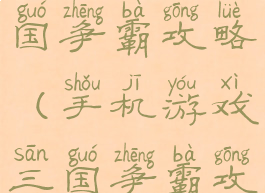 guó zhēng bà gōng lüè
国争霸攻略
shǒu jī yóu xì
（手机游戏
sān guó zhēng bà gōng
三国争霸攻